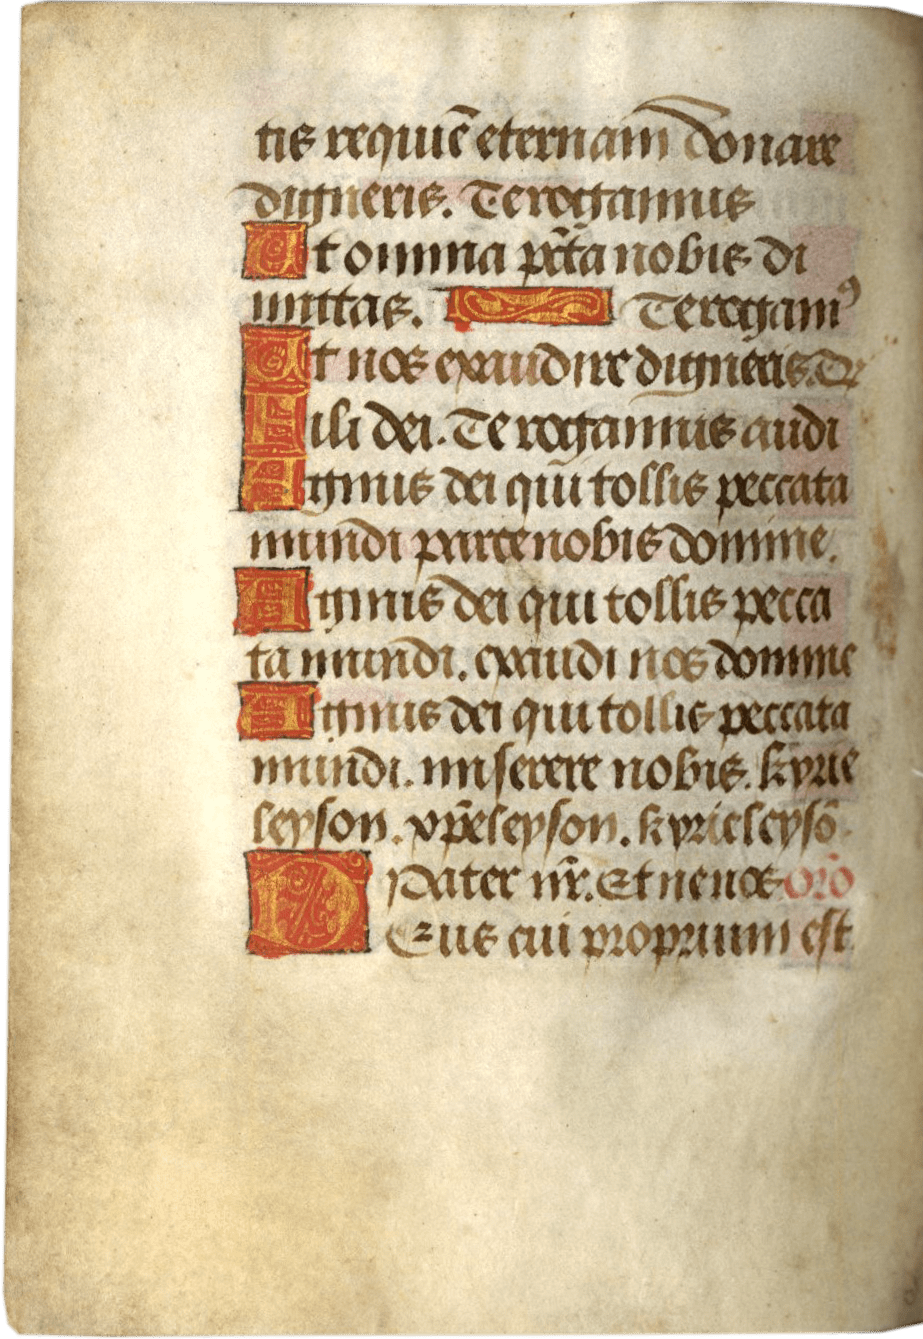 tis requiē eternam donare
digneris. Te rogamus
Et omnia pc̄ta nobis di
mittas. Te rogamꝰ
Et nos exaudire digneris. Te
Fili dei. Te rogamus audi
Agnus dei qui tollis peccata
mundi parce nobis domine.
Agnus dei qui tollis pecca
ta mundi. exaudi nos domine
Agnus dei qui tollis peccata
mundi. miserere nobis. kyrie
leyson. xp̄eleyson. kyrieleysō.
Pater nr̄. Et ne nos oro
Deus cui proprium est